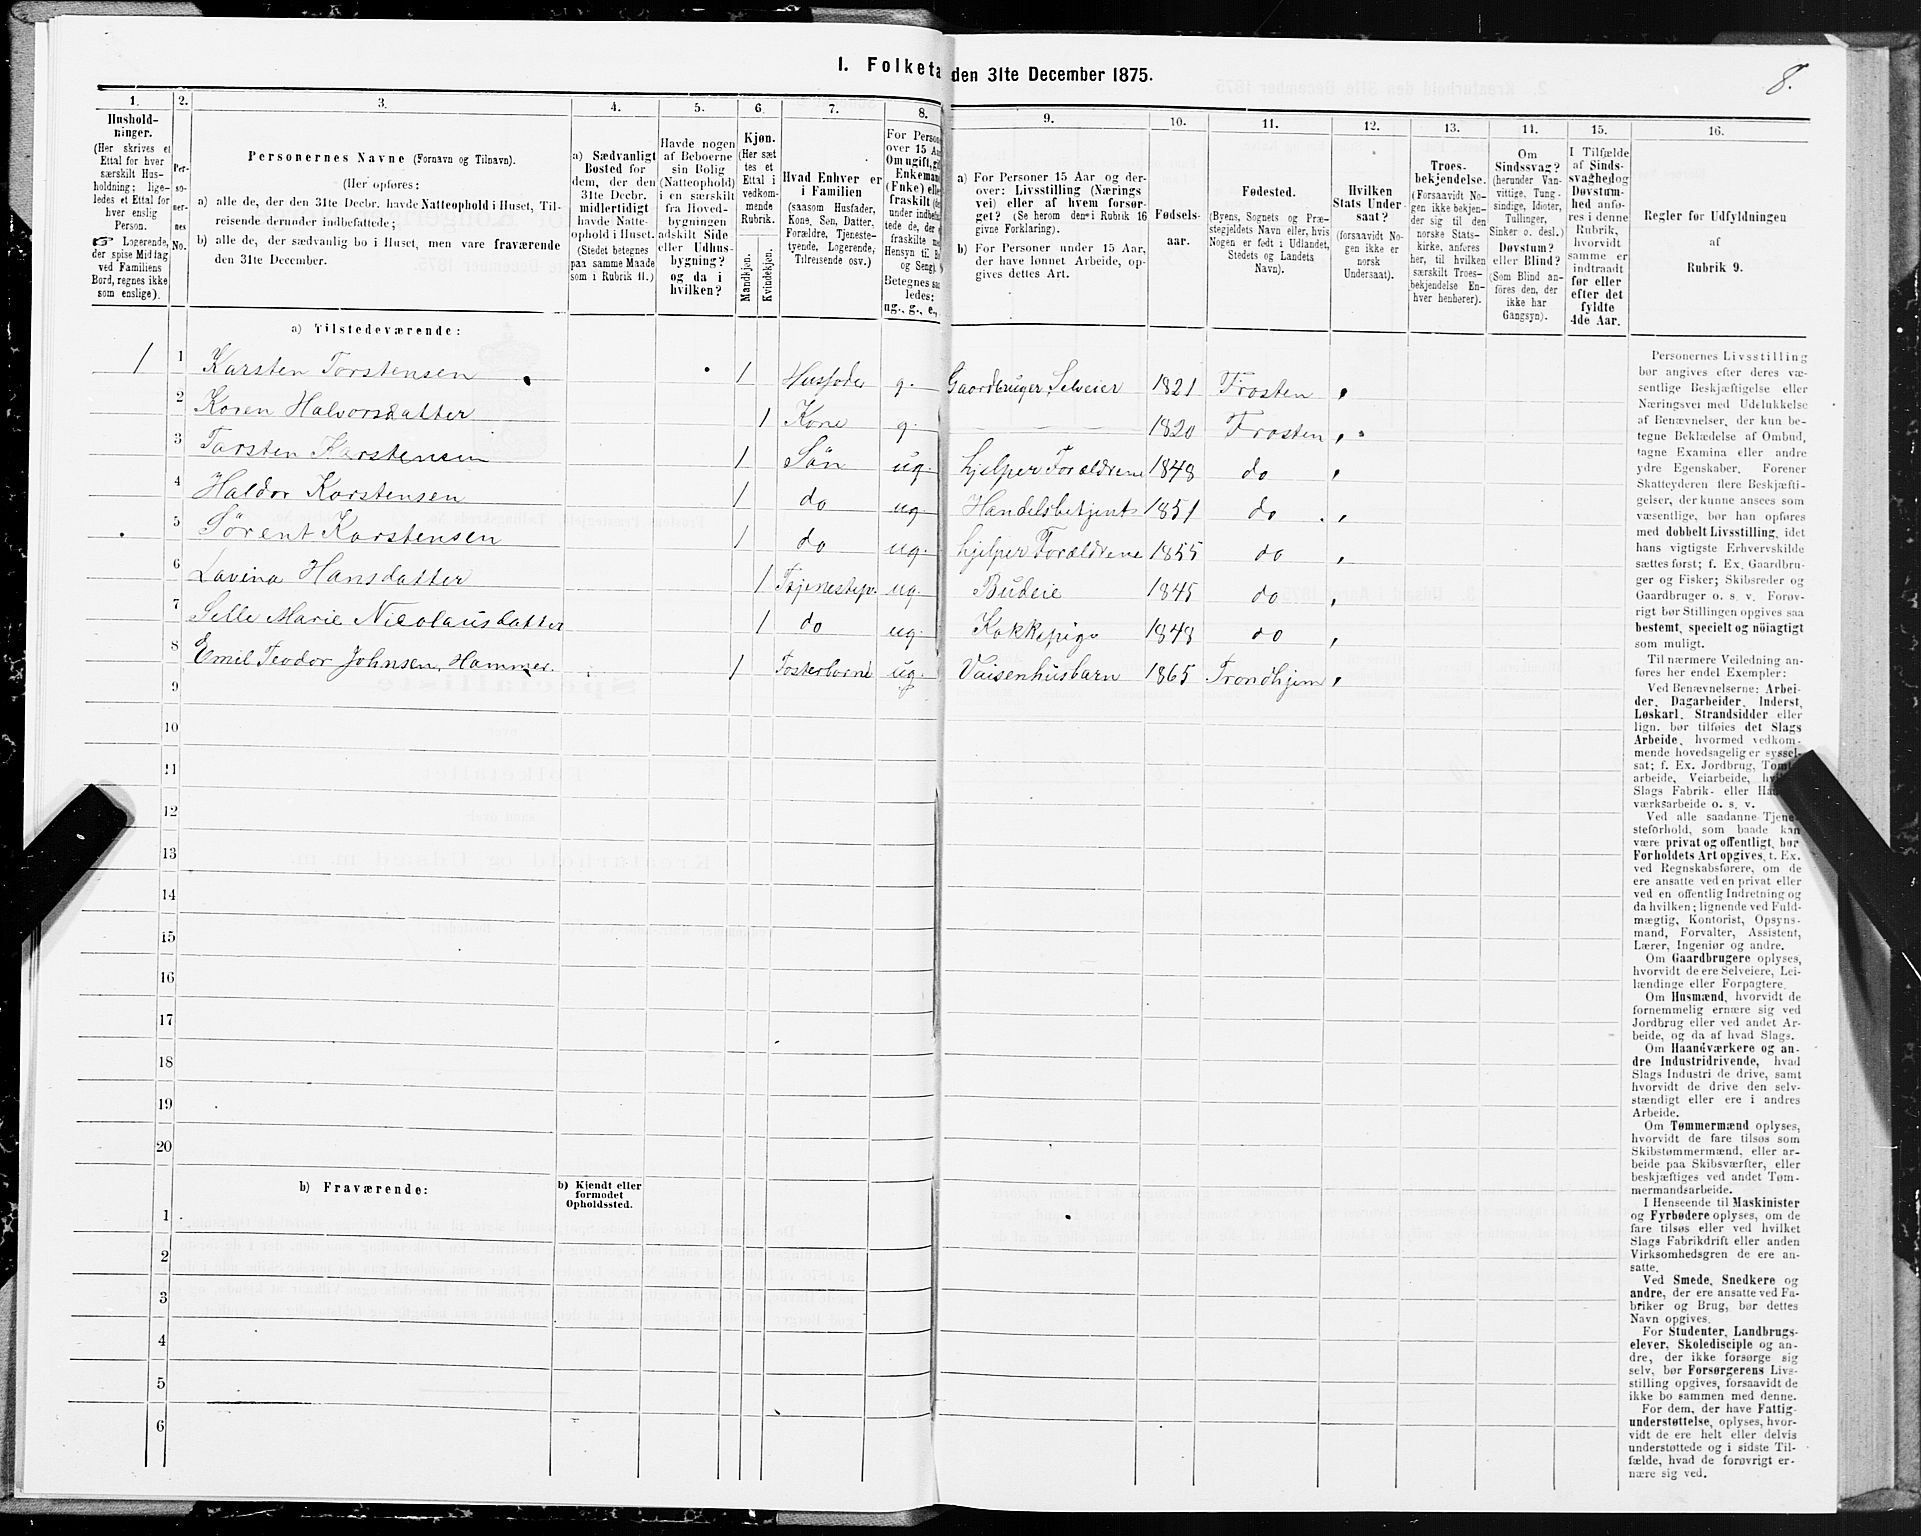 I. Folketa den 31te December 1875.
8.
1. 2. 3. 4. 5. 6. 7. 8. 9. 10. 11. 12. 13. 11. 15. 16.
Hushold-
ninger.
(Her skrives et
Ettal for hver
særskilt Hus-
holdning; lige-
ledes et Ettal for
hver enslig
Person.
☞ Logerende,
der spise Middag
ved Familiens
Bord, regnes ikke
som enslige).
Per-
so-
ner-
nes
No.
Personernes Navne (Fornavn og Tilnavn).
(Her opføres:
a) alle de, der den 31te Decbr. havde Natteophold i Huset, Til-
reisende derunder indbefattede;
b) alle de, der sædvanlig bo i Huset, men vare fraværende
den 31te December.
a) Sædvanligt
Bosted for
dem, der den
31te Decbr.
midlertidigt
havde Natte-
ophold i Huset.
(Stedet betegnes
paa samme Maade
som i Rubrik 11.)
Havde nogen
af Beboerne
sin Bolig
(Natteophold)
i en særskilt
fra Hoved-
bygningen
adskilt Side
eller Udhus-
bygning?
og da i
hvilken?
Kjøn.
(Her sæt
tes et
Ettal i
vedkom-
mende
Rubrik.
Mandkjøn.
Kvindekjøn.
Hvad Enhver er
i Familien
(saasom Husfader,
Kone, Søn, Datter,
Forældre, Tjeneste-
tyende, Logerende,
Tilreisende osv.)
For Person
over 15 Aa
Om ugift, gif
Enkeman
(Fuke) elle
fraskilt (de
under indbefat
tede de, der
fraskilte m
Hensyn til B
og Seng).
Betegnes saa
ledes:
ug., g., e.,
a) For Personer 15 Aar og der-
over: Livsstilling (Nærings
vei) eller af hvem forsør-
get? (Se herom den i Rubrik 16
givne Forklaring).
b) For Personer under 15 Aar,
der have lønnet Arbeide, op-
gives dettes Art.
Fødsels-
aar.
Fødested.
(Byens, Sognets og Præ-
stegjeldets Navn eller, hvis
Nogen er født i Udlandet,
Stedets og Landets
Navn).
Hvilken
Stats Under
saat?
(forsaavidt No-
gen ikke er
norsk
Undersaat).
Troes-
bekjendelse.
(Forsaavidt No-
gen ikke bekjen-
der sig til den
norske Stats-
kirke, anføres
her, til hvilken
særskilt Troes-
bekjendelse En-
hver henhører).
Om
Sindssvag?
(herunder Van-
vittige, Tung-
sindige, Idioter,
Tullinger,
Sinker o. desl.)
Døvstum?
eller Blind?
(Som Blind an-
føres den, der
ikke har
Gangsyn).
I Tilfælde
af Sinds-
svaghed og
Døvstum-
hed anfø-
res i denne
Rubrik,
hvorvidt
samme er
indtraadt
før eller
efter det
fyldte
4de Aar.
Regler før Udfyldningen
af
Rubrik 9.
a) Tilstedeværende:
1 1 Karsten Torstensen 1 Husfader g. Gaardbruger, Selveier 1821 Frosten
2 Karen Halvorsdatter 1 Kone g. 1820 Frosten
3 Torsten Karstensen 1 Søn ug. hjelper Forældrene 1848 do
4 Haldor Karstensen 1 do ug Handelsbetjent 1851 do
5 Sørent Karstensen 1 do ug. hjelper Forældrene 1855 do
6 Lavina Hansdatter 1 ug. Budeie 1845 do
7 Sille Marie Nicolausdatter 1 do ug. Kokkepige 1848 do
8 Emil Teodor Johnsen Hammer 1 Fosterbarne ug. Vaisenhusbarn 1865 Trondhjem
9
10
11
12
13
14
15
16
17
18
19
20
b) Fraværende:
b) Kjendt eller
formodet
Opholdssted.
1
2
3
4
5
6
Personernes Livsstilling
bør angives efter deres væ-
sentlige Beskjæftigelse eller
Næringsvei med Udelukkelse
af Benævnelser, der kun be-
tegne Beklædelse af Ombud,
tagne Examina eller andre
ydre Egenskaber. Forener
Skatteyderen flere Beskjæfti-
gelser, der kunne ansees som
væsentlige, bør han opføres
med dobbelt Livsstilling, idet
hans vigtigste Erhvervskilde
sættes først; f. Ex. Gaardbru-
ger og Fisker; Skibsreder og
Gaardbruger o. s. v. Forøv-
rigt bør Stillingen opgives saa
bestemt, specielt og nöiagtigt
som muligt.
Til nærmere Veiledning an-
føres her endel Exempler:
Ved Benævnelserne: Arbei-
der, Dagarbeider, Inderst,
Løskarl, Strandsidder eller
lign. bør tilføies det Slags
Arbeide, hvormed vedkom-
mende hovedsagelig er syssel-
sat; f. Ex. Jordbrug, Tomt-
arbeide, Veiarbeide, hvilket
Slags Fabrik- eller Haand-
værksarbeide o. s. v.
Ved alle saadanne Tjene-
steforhold, som baade kan
være privat og offentligt, bør
Forholdets Art opgives, t. Ex.
ved Regnskabsførere, om de
ere ansatte ved en privat eller
ved en offentlig Indretning og
da hvilken; lignende ved Fuld-
mægtig, Kontorist, Opsyns-
mand, Forvalter, Assistent,
Lærer, Ingeniør og andre.
Om Gaardbrugere oplyses,
hvorvidt de ere Selveiere, Lei-
lændinge eller Forpagtere.
Om Husmænd, hvorvidt de
fornemmelig ernære sig ved
Jordbrug eller ved andet Ar-
beide, og da af hvad Slags.
Om Haandværkere og an-
dre Industridrivende, hvad
Slags Industri de drive, samt
hvorvidt de drive den selv-
stændigt eller ere i andres
Arbeide.
Om Tømmermænd oplyses,
hvorvidt de fare tilsøs som
Skibstømmermænd, eller ar-
beide paa Skibsværfter, eller
beskjæftiges ved andet Tøm-
mermandsarbeide.
I Henseende til Maskinister
og Fyrbødere oplyses, om de
fare tilsøs eller ved hvilket
Slags Fabrikdrift eller anden
Virksomhedsgren de ere an-
satte.
Ved Smede, Snedkere og
andre, der ere ansatte ved Fa-
briker og Brug, bør dettes
Navn opgives.
For Studenter, Landbrugs-
elever, Skoledisciple og an-
dre, der ikke forsørge sig
selv, bør Forsørgerens Livs-
stilling opgives, forsaavidt de
ikke bo sammen med denne.
For dem, der have Fattig-
understøttelse, oplyses, hvor-
vidt de ere helt eller delvis
understøttede og i sidste Til-
fælde, hvad de forøvrigt er-
nære sig ved.